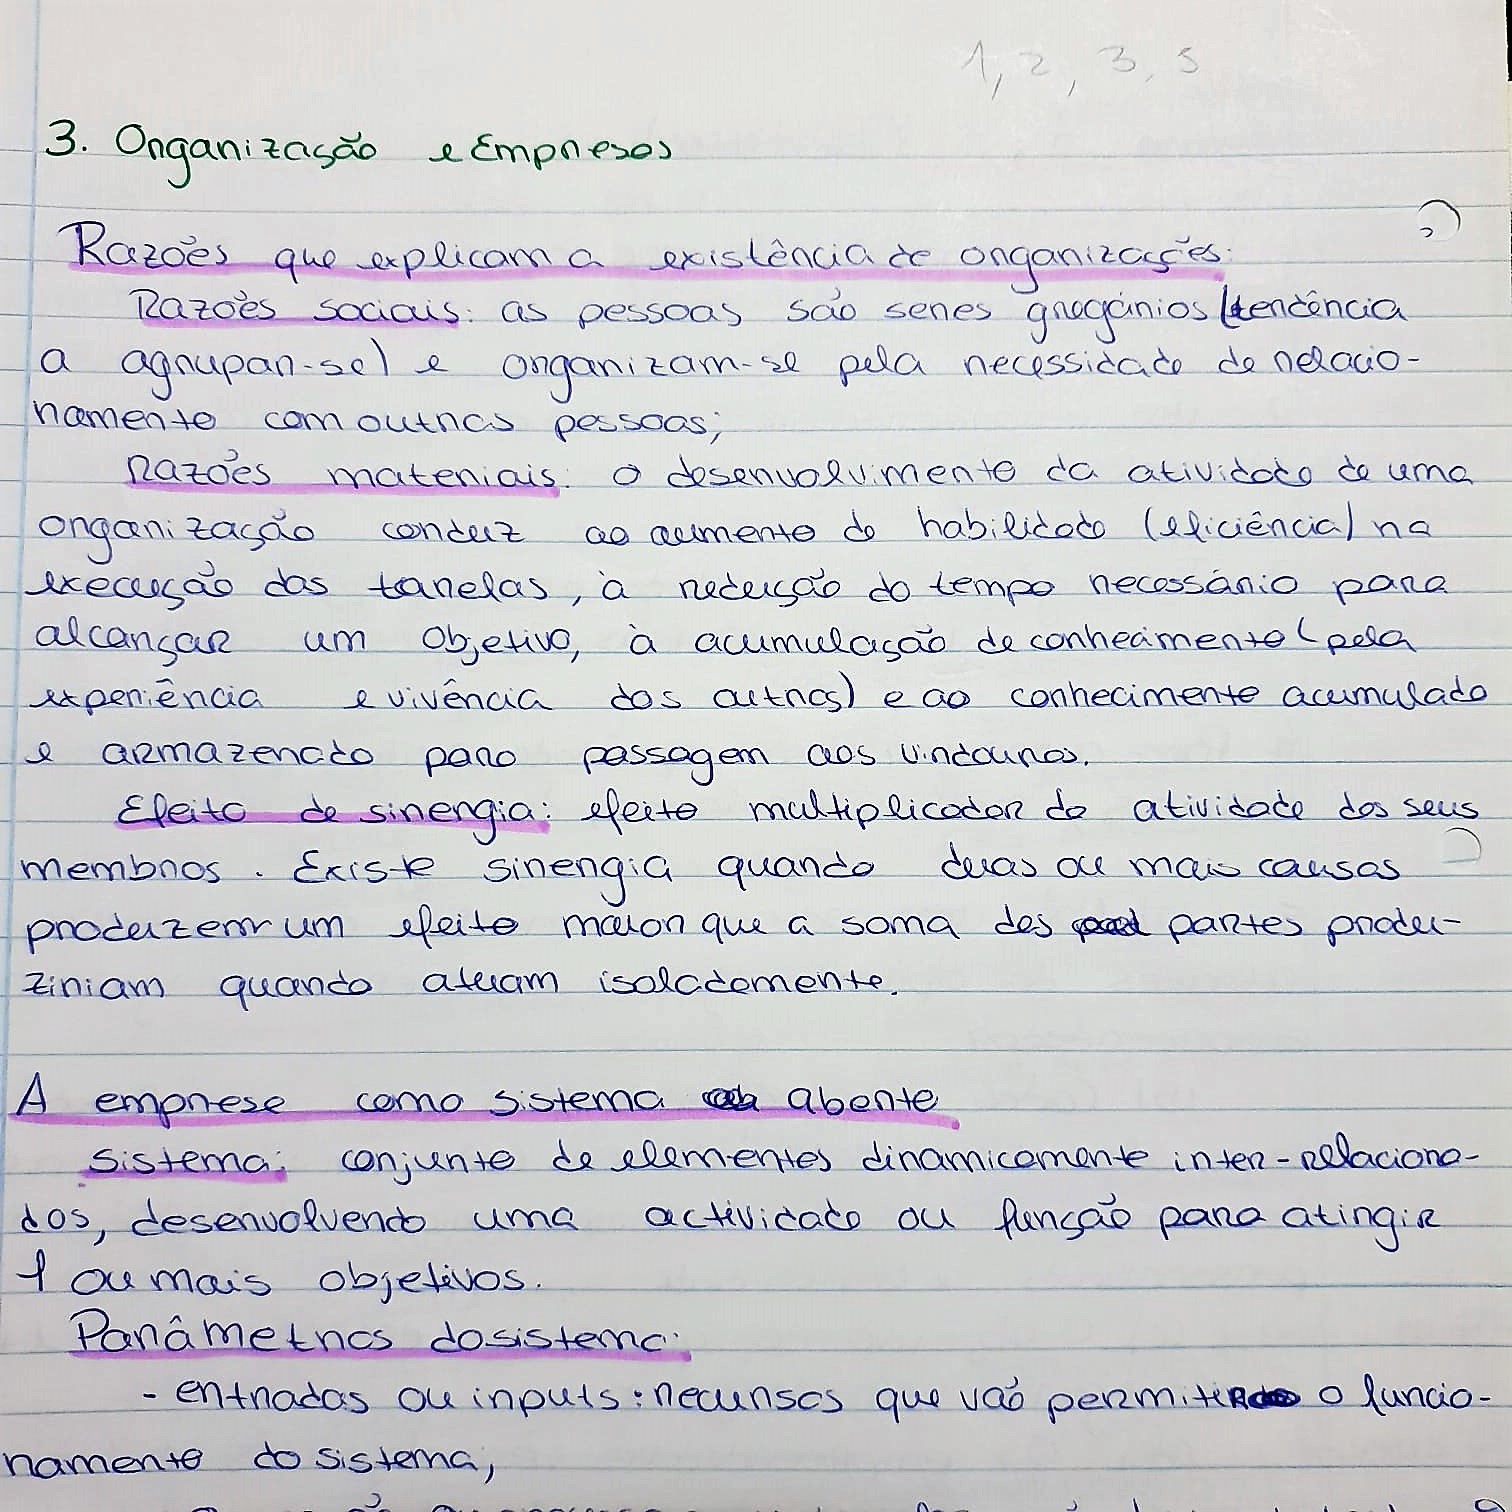 1, 2, 3, 5
3. Organização e Empresas
Razões que explicam a existência de organizações:
Razões sociais: as pessoas são seres gregários (tendência
a agrupar-se) e organizam-se pela necessidade de relacio-
namento com outras pessoas;
Razões materiais: o desenvolvimento da atividade de uma
organização conduz ao aumento da habilidade (eficiência) na
execução das tarefas, à redução do tempo necessário para
alcançar um objetivo, à acumulação de conhecimento (pela
experiência e vivência dos outros) e ao conhecimento acumulado
e armazenado para passagem aos vindouros.
Efeito de sinergia: efeito multiplicador da atividade dos seus
membros. Existe sinergia quando duas ou mais causas
produzem um efeito maior que a soma das partes produ-
ziriam quando atuam isoladamente.
A empresa como sistema aberto
Sistema: conjunto de elementos dinamicamente inter-relaciona-
dos, desenvolvendo uma actividade ou função para atingir
1 ou mais objetivos.
Parâmetros do sistema:
- entradas ou inputs: recursos que vão permitir o funcio-
namento do sistema;